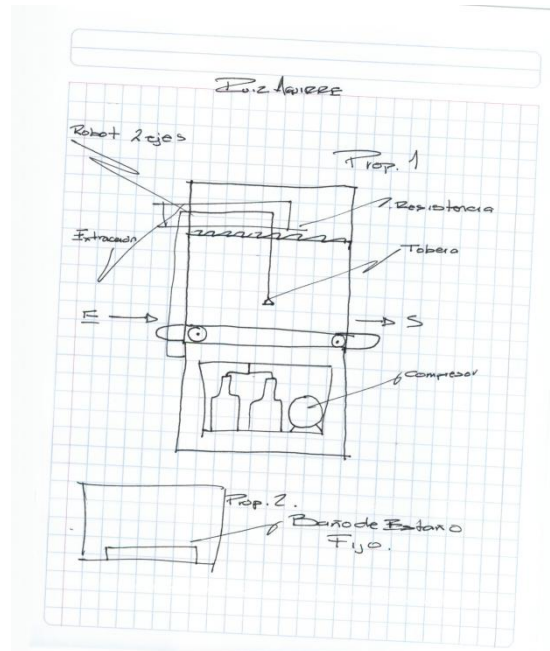 Ruiz Aguirre
Robot 2 ejes
Prop. 1
Resistencia
Extracción
Tobera
E
S
Compresor
Prop. 2.
Baño de Estaño
Fijo.